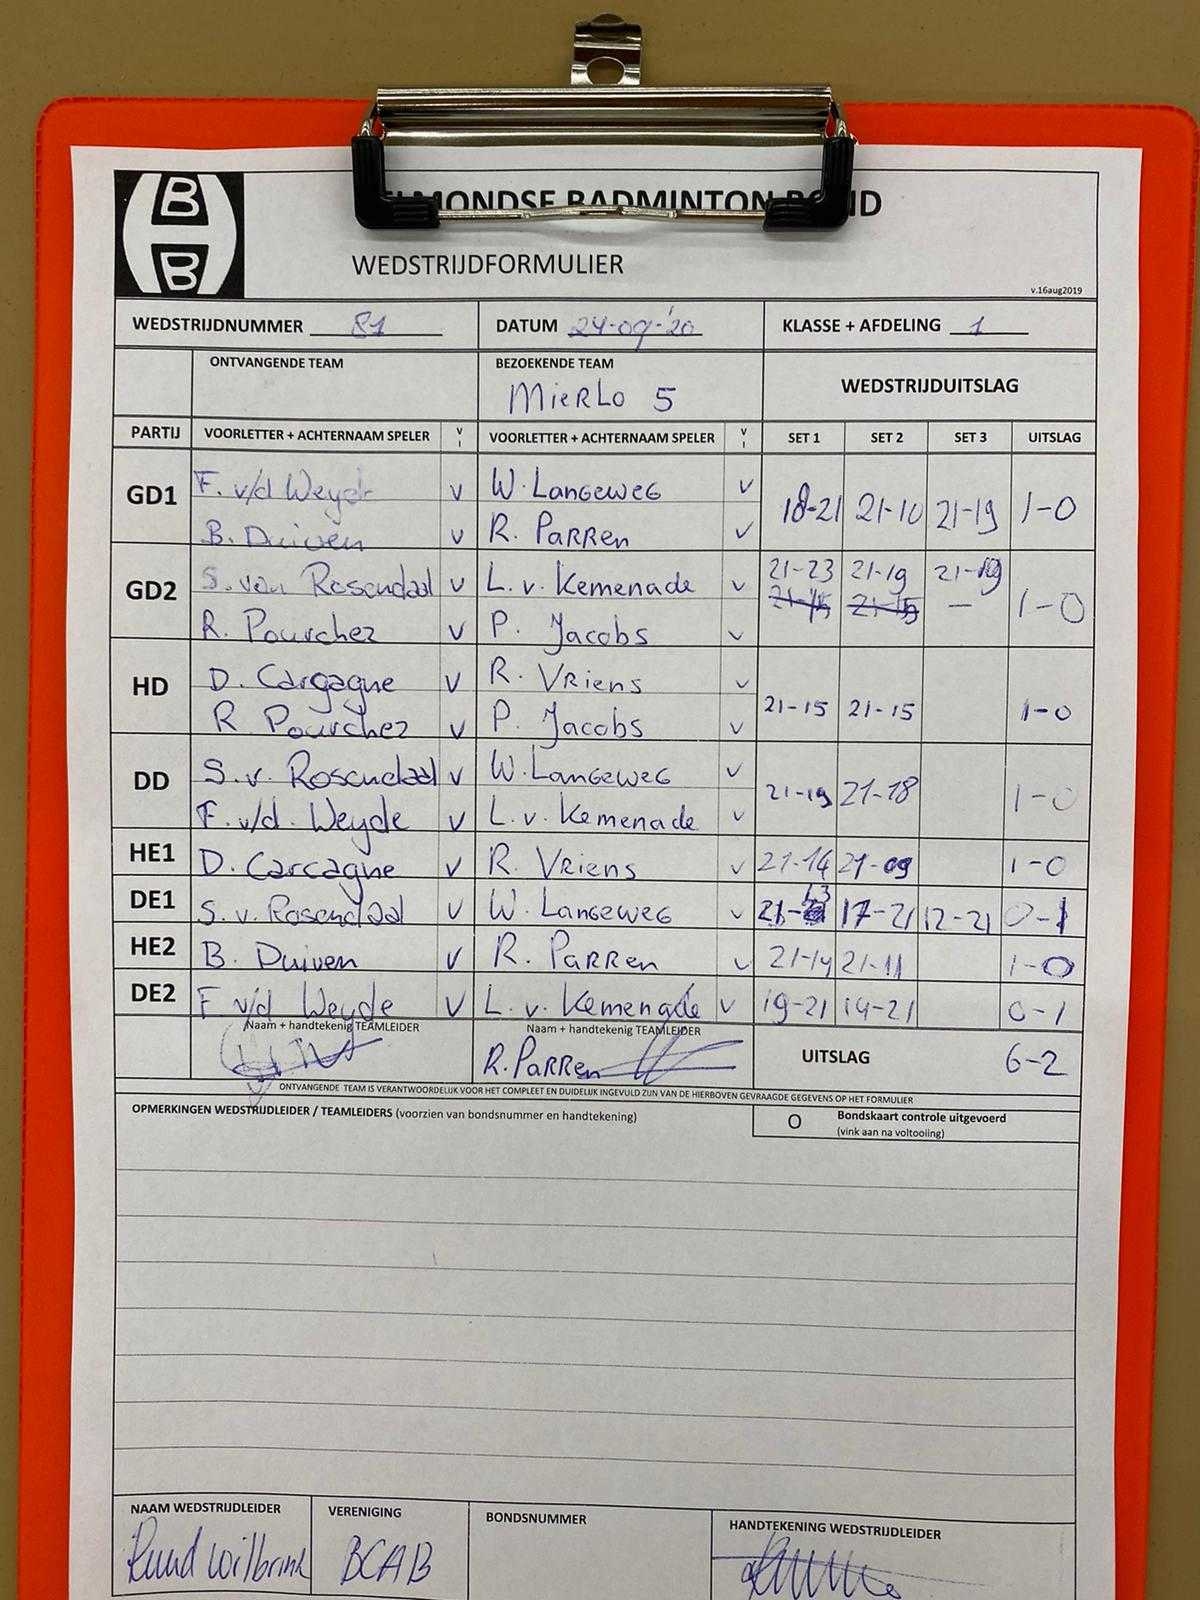 B
B
HELMONDSE BADMINTON BOND
WEDSTRIJDFORMULIER
v.16aug2019
WEDSTRIJDNUMMER 81 DATUM 24-09-'20 KLASSE + AFDELING 1
ONTVANGENDE TEAM BEZOEKENDE TEAM WEDSTRIJDUITSLAG
MIERLO 5
PARTIJ VOORLETTER + ACHTERNAAM SPELER V I VOORLETTER + ACHTERNAAM SPELER V I SET 1 SET 2 SET 3 UITSLAG
GD1 F. v/d Weyde v W. Langeweg v 18-21 21-10 21-19 1-0
B. Duiven v R. Parren v
GD2 S. van Rosendaal v L. v. Kemenade v 21-23 21-19 21-19 1-0
R. Pourchez v P. Jacobs v 21-15 21-15 —
HD D. Cargagne v R. Vriens v 21-15 21-15 1-0
R Pourchez v P. Jacobs v
DD S. v. Rosendaal v W. Langeweg v 21-19 21-18 1-0
F. v/d. Weyde v L. v. Kemenade v
HE1 D. Carcagne v R. Vriens v 21-14 21-09 1-0
DE1 S. v. Rosendaal v W. Langeweg v 17-21 12-21 0-1
HE2 B. Duiven v R. Parren v 21-14 21-11 1-0
DE2 F v/d Weyde v L. v. Kemenade v 19-21 14-21 0-1
Naam + handtekenig TEAMLEIDER Naam + handtekenig TEAMLEIDER
R. Parren UITSLAG 6-2
ONTVANGENDE TEAM IS VERANTWOORDELIJK VOOR HET COMPLEET EN DUIDELIJK INGEVULD ZIJN VAN DE HIERBOVEN GEVRAAGDE GEGEVENS OP HET FORMULIER
OPMERKINGEN WEDSTRIJDLEIDER / TEAMLEIDERS (voorzien van bondsnummer en handtekening)
O Bondskaart controle uitgevoerd
(vink aan na voltooiing)
NAAM WEDSTRIJDLEIDER VERENIGING BONDSNUMMER HANDTEKENING WEDSTRIJDLEIDER
Ruud Wilbrink BCAB